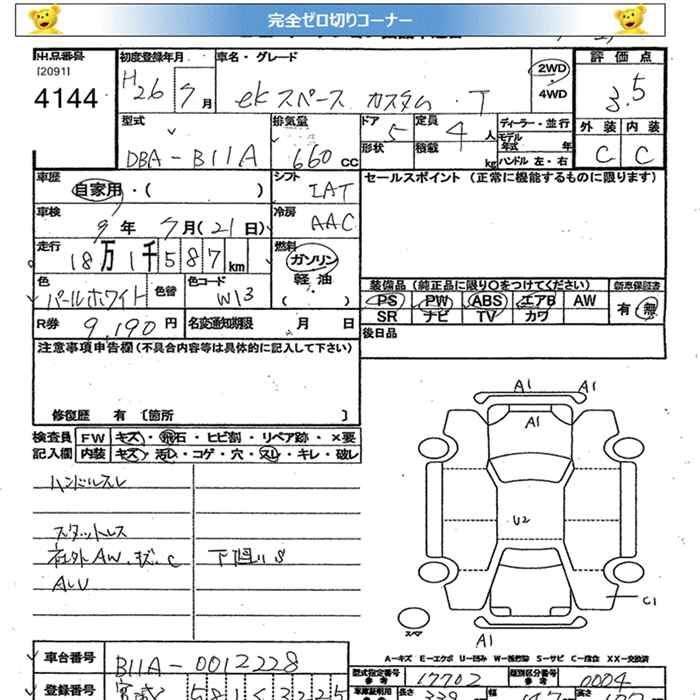 完全ゼロ切りコーナー
出品番号
[2091]
4144
初度登録年月
H26 年 7 月
車名・グレード
ekスペース カスタム . T
2WD
4WD
評価点
3.5
外装 内装
C C
型式
DBA-B11A
排気量
660 cc
ドア 5
形状
定員 4 人
積載 kg
ディーラー・並行
モデル年式 年
ハンドル 左・右
車歴
自家用・( )
シフト
IAT
セールスポイント (正常に機能するものに限ります)
車検
9 年 7 月(21日)
冷房
AAC
走行
18万1千587km
燃料
ガソリン
軽油
( . )
色
パールホワイト
色替
色コード
W13
装備品 (純正品に限り○をつけてください)
新車保証書
PS PW ABS エアB AW
SR ナビ TV カワ
有・無
R券 9,190 円
名変通知期限 月 日
後日品
注意事項申告欄(不具合内容等は具体的に記入して下さい)
修復歴 有〔箇所 〕
検査員
記入欄
FW キズ・飛石・ヒビ割・リペア跡・×要
内装 キズ・汚レ・コゲ・穴・スレ・キレ・破レ
ハンドルスレ
スタットレス
社外AW.キズ.C 下廻りS
ALU
A1 A1
A1
U2
C1
スペア
A1
A-キズ E-エクボ U-凹み W-補修跡 S-サビ C-腐食 XX-交換済
車台番号
B11A-0012228
型式指定番号
参考
17702
類別区分番号
参考
0004
登録番号
長さ
339
幅
高さ